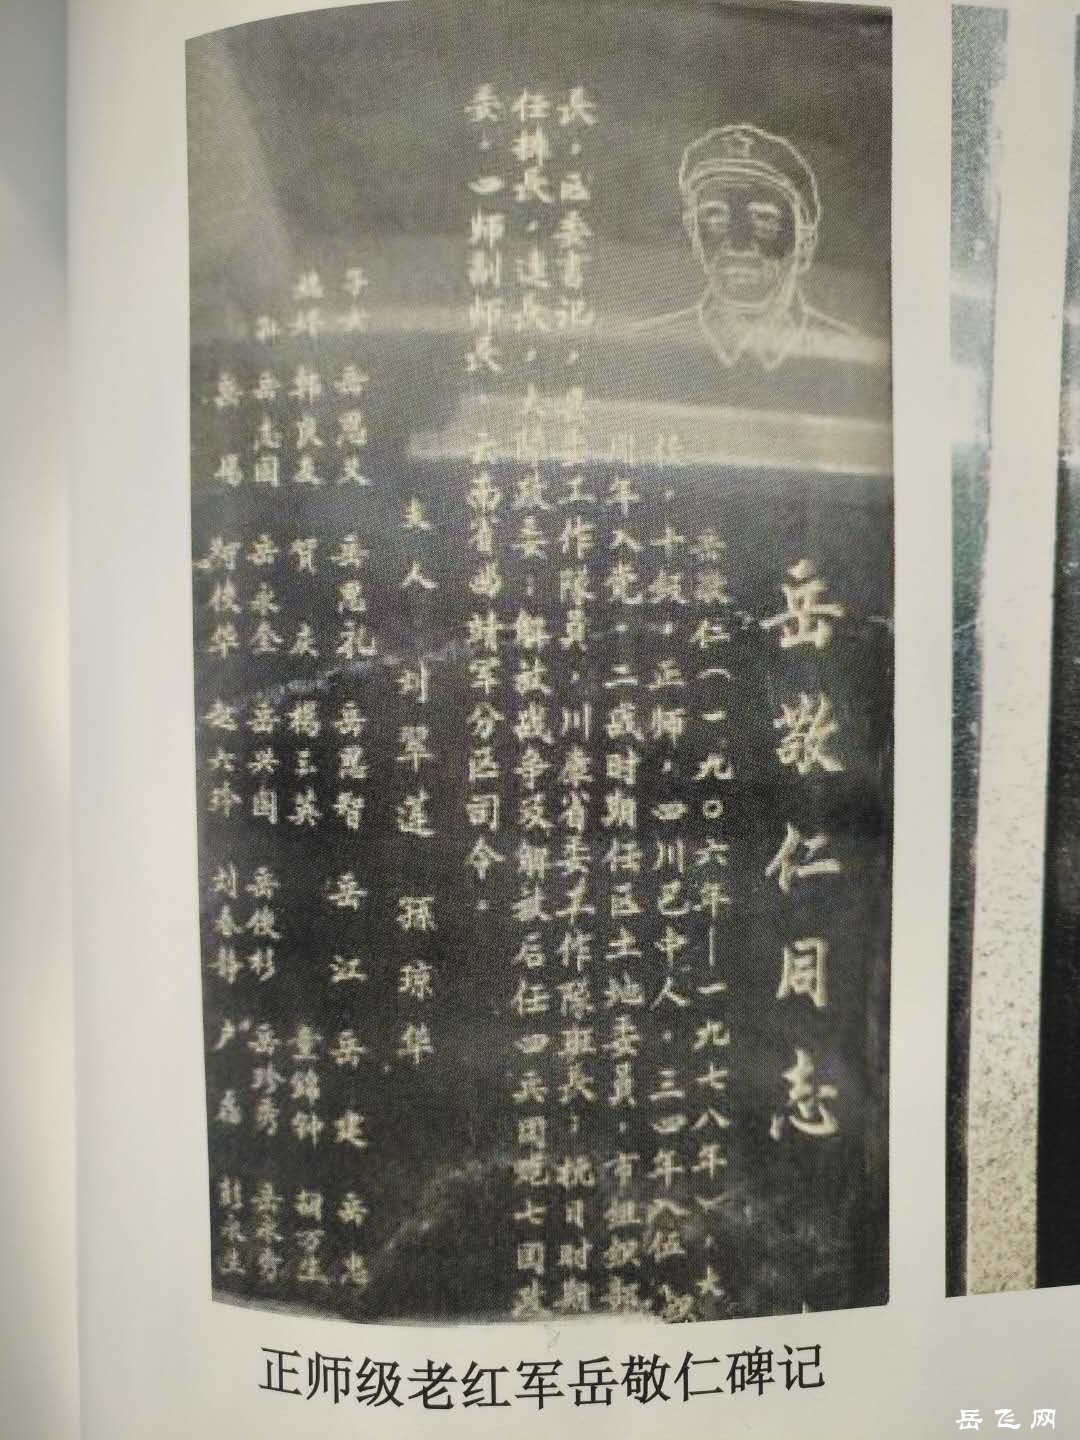 岳敬仁同志
岳敬仁（一九〇六年—一九七八年），大
校，十级，正师，四川巴中人，三四年入伍，
年入党，二战时期任区土地委员，市组织部
长，区委书记，县委工作队员，川康省委工作队班长；抗日时期
任排长，连长，大队政委；解放战争及解放后任四兵团炮七团政
委，四师副师长，云南省曲靖军分区司令。
夫人 刘翠莲 孫琼华
子女 岳思义 岳思礼 岳思智 岳江 岳建 岳忠
郭良友 贺庆 杨玉英 童锦钟 胡万生
孙 岳志国 岳永全 岳兴国 岳俊杉 岳珍秀
岳 俊华 赵六玲 刘春静 卢磊 彭永生
正师级老红军岳敬仁碑记
岳飞网